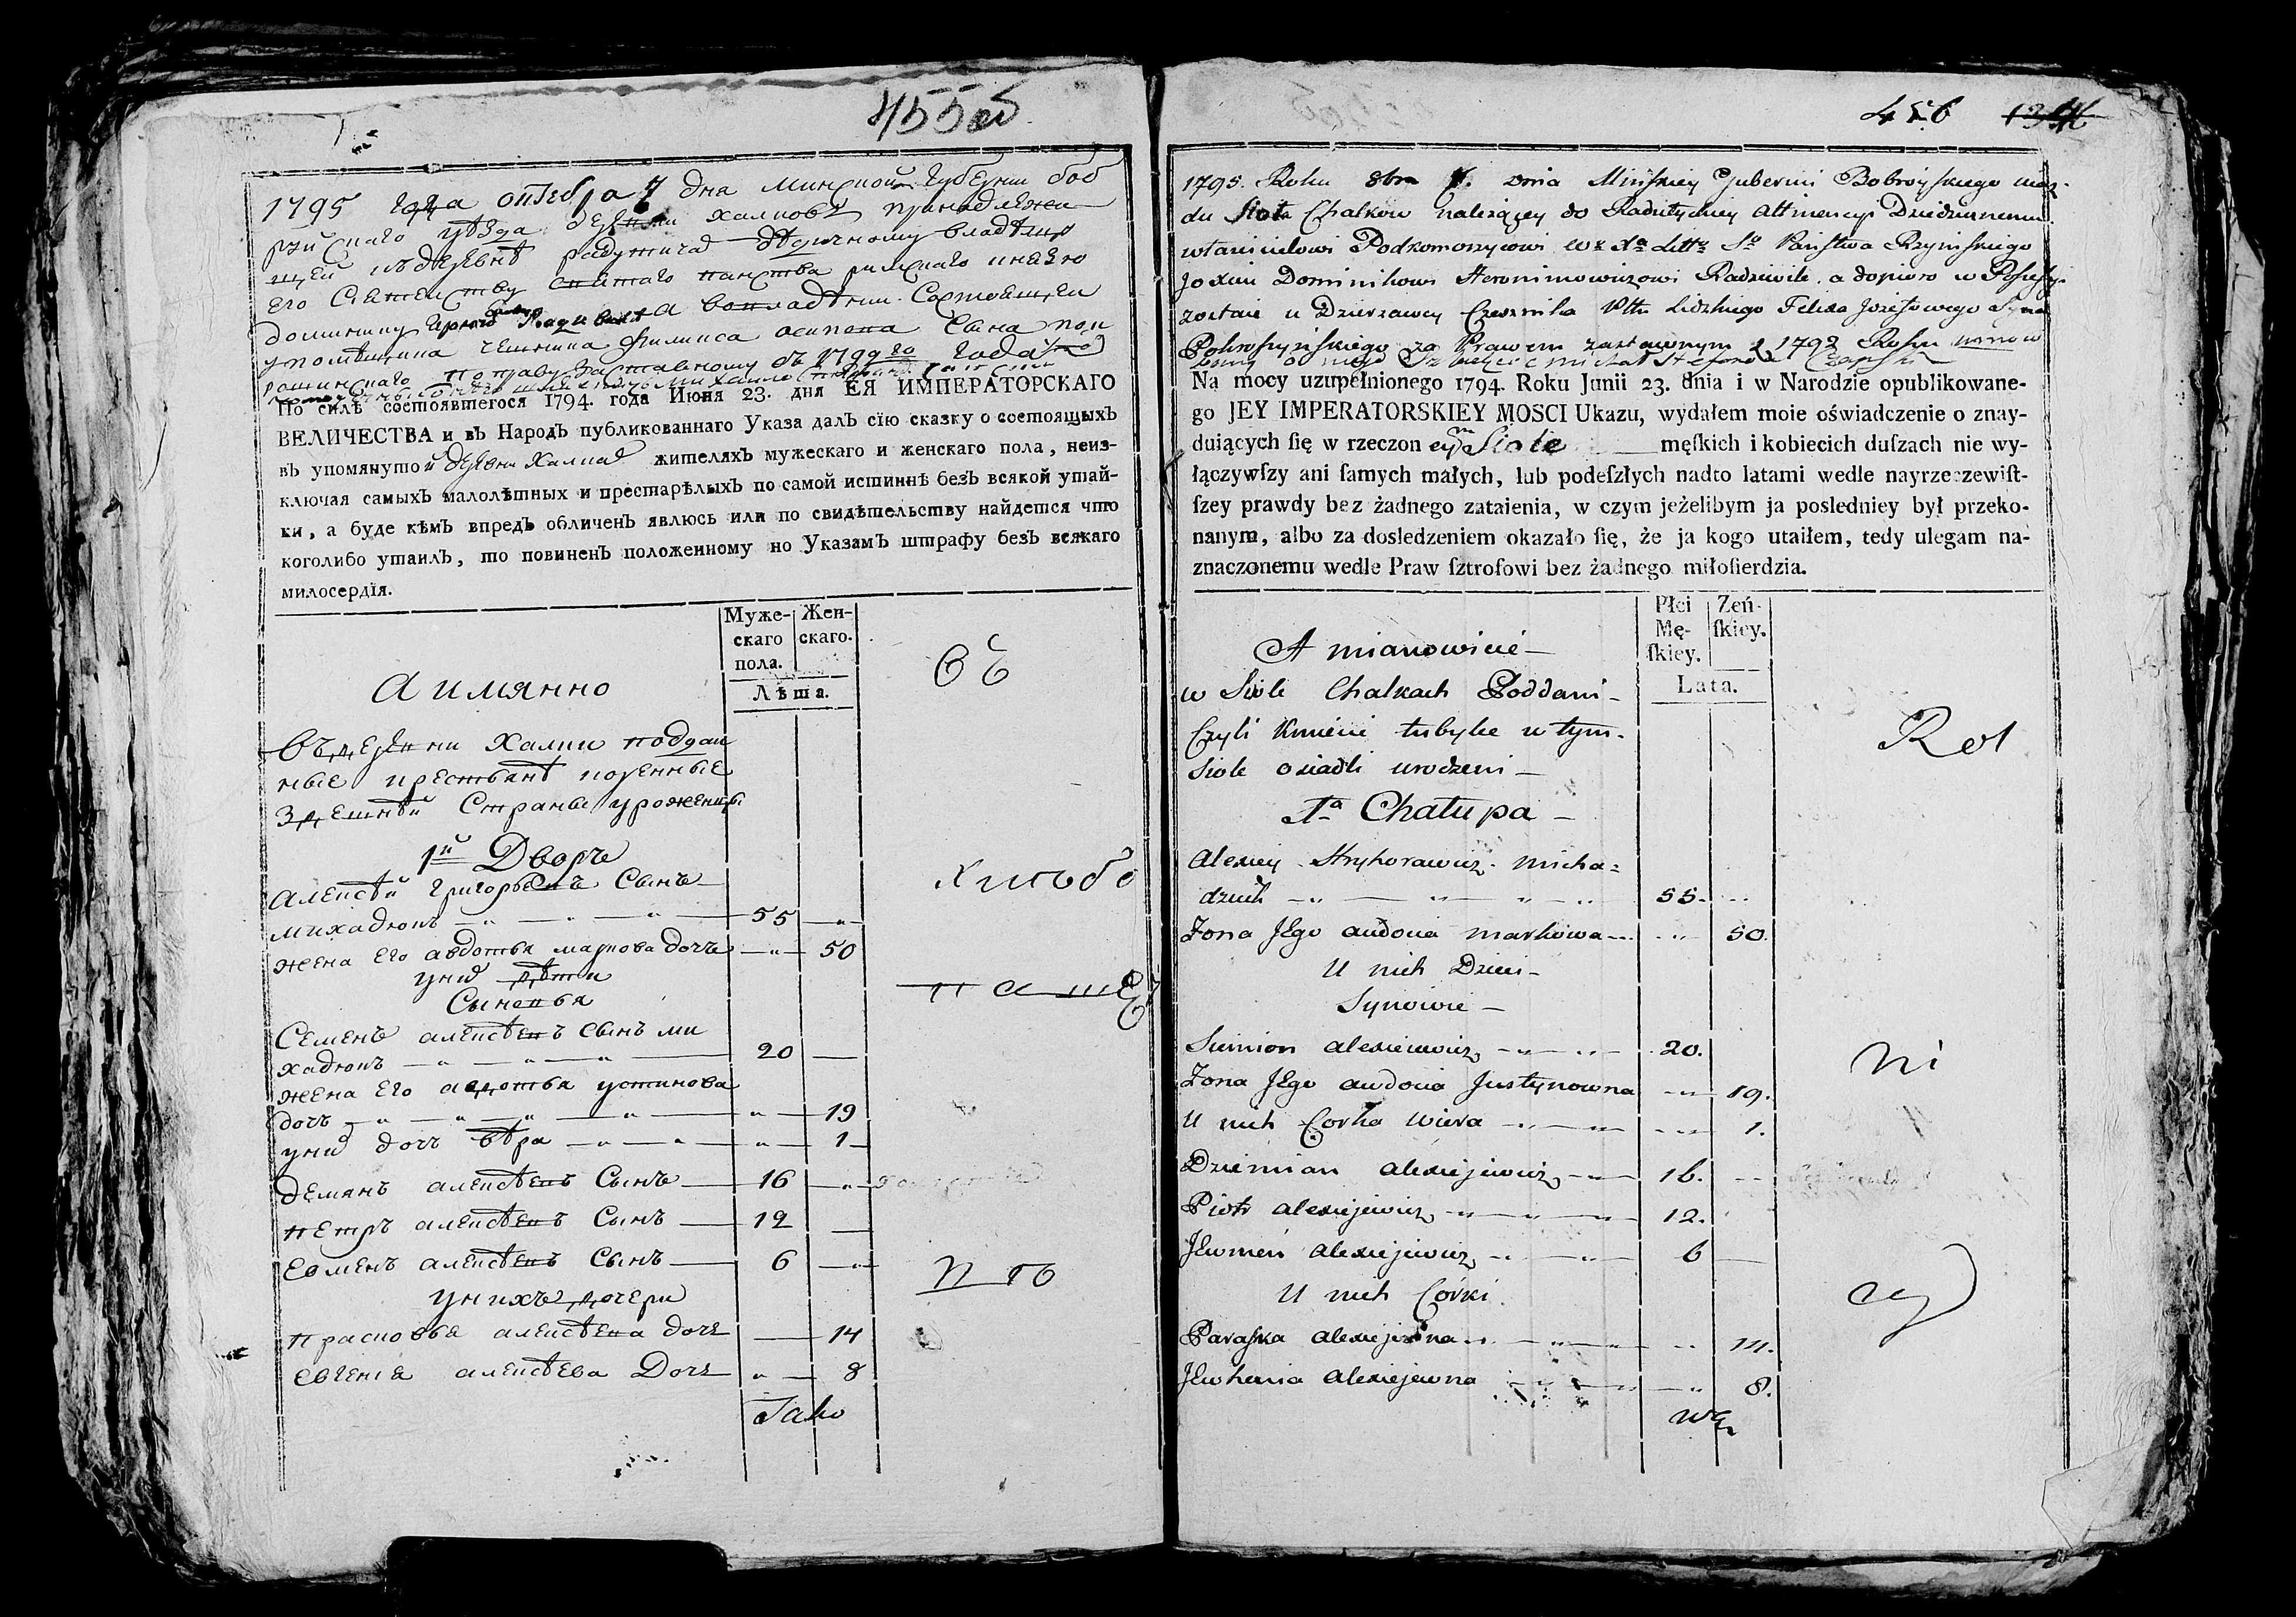 455об
1795 года октебра 7 дна Минской Губернии боб
руйскаго уѣзда деревни халковъ принадлежа
щей къ деревнѣ радужича дѣдичному владѣлцу
его Сіятелству святаго панства римскаго князю
доминику Радивила а вовладѣнии Состоящеи
упомѣщика чешника филикса осипова Сына пок
рошинскаго по праву заставному съ 1792го Года
По силѣ состоявшегося 1794. года Июня 23. дня ЕЯ ИМПЕРАТОРСКАГО
ВЕЛИЧЕСТВА и въ Народъ публикованнаго Указа далъ сїю сказку о состоящыхъ
въ упомянутой деревни Халках жителяхъ мужескаго и женскаго пола, неиз-
ключая самыхъ малолѣтных и престарѣлыхъ по самой истиннѣ безъ всякой утай-
ки, а буде кѣмъ впредъ обличенъ явлюсь или по свидѣтельству найдется что
коголибо утаилъ, то повиненъ положенному по Указамъ штрафу безъ всякаго
милосердїя.
Муже-скаго пола. Жен-скаго.
Лѣта.
А имянно
въ деревни Халки поддан
ные крестьянѣ коренные
здешнѣй Страны уроженцы
1й Дворъ
Алексѣй Григорьевъ Сынъ
михадюкъ 55
жена Его авдотья маркова дочъ 50
уних дѣти
Сыновья
Семенъ алексѣевъ сынъ ми
хадюкъ 20
жена Его авдотья устинова
дочъ 19
уних дочъ вѣра 1
демянъ алексѣевъ Сынъ 16
петръ алексѣевъ Сынъ 12
евменъ алексѣевъ Сынъ 6
унихъ дочери
прасковья алексѣева дочъ 14
евгения алексѣева Дочъ 8
къ
456
1795. Roku 8bra 7. dnia Mińskiey Guberni Bobroyskiego uiaz-
du Sioła Chalkow należącey do Radutyckiey attinencyi Dziedzicznemu
właścicielowi Podkomorzycowi Wx Xa Litto So Państwa Rzymskiego
Joxciu Dominikowi Heronimowiczowi Radziwile, a dopiero w Possessyi
zostaie u Dzierzawcy Czesznika Ptu Lidzkiego Felixa Jozefowego Syna
Pokroszynskiego za Prawem zastawnym z 1792 Roku
Na mocy uzupełnionego 1794. Roku Junii 23. dnia i w Narodzie opublikowane-
go JEY IMPERATORSKIEY MOSCI Ukazu, wydałem moie oświadczenie o znay-
duiących ſię w rzeczon eym Siole męſkich i kobiecich duſzach nie wy-
łączywſzy ani ſamych małych, lub podeſzłych nadto latami wedle nayrzeczewiſt-
ſzey prawdy bez żadnego zataienia, w czym jeżelibym ja posledniey był przeko-
nanym, albo za dosledzeniem okazało ſię, że ja kogo utaiłem, tedy ulegam na-
znaczonemu wedle Praw ſztrofowi bez żadnego miłoſierdzia.
Płci Mę-ſkiey. Zeń-ſkiey.
Lata.
A mianowicie
w Siole Chalkach Poddani
Czyli Kmiecie tubylce w tym
Siole osiadli urodzeni
1a Chałupa
Alexiey Hryhorewicz Micha-
dziuk 55.
Zona Jego Audocia Markowa 50.
U nich Dzieci
Synowie
Siemion Alexiewicz 20.
Zona Jego Audocia Justynowna 19.
U nich Corka Wiera 1.
Dziemian Alexiejewicz 16.
Piotr Alexiejewicz 12.
Jewmen Alexiejewicz 6
U nich Córki
Paraska Alexiejewna 14.
Jewhenia Alexiejewna 8.